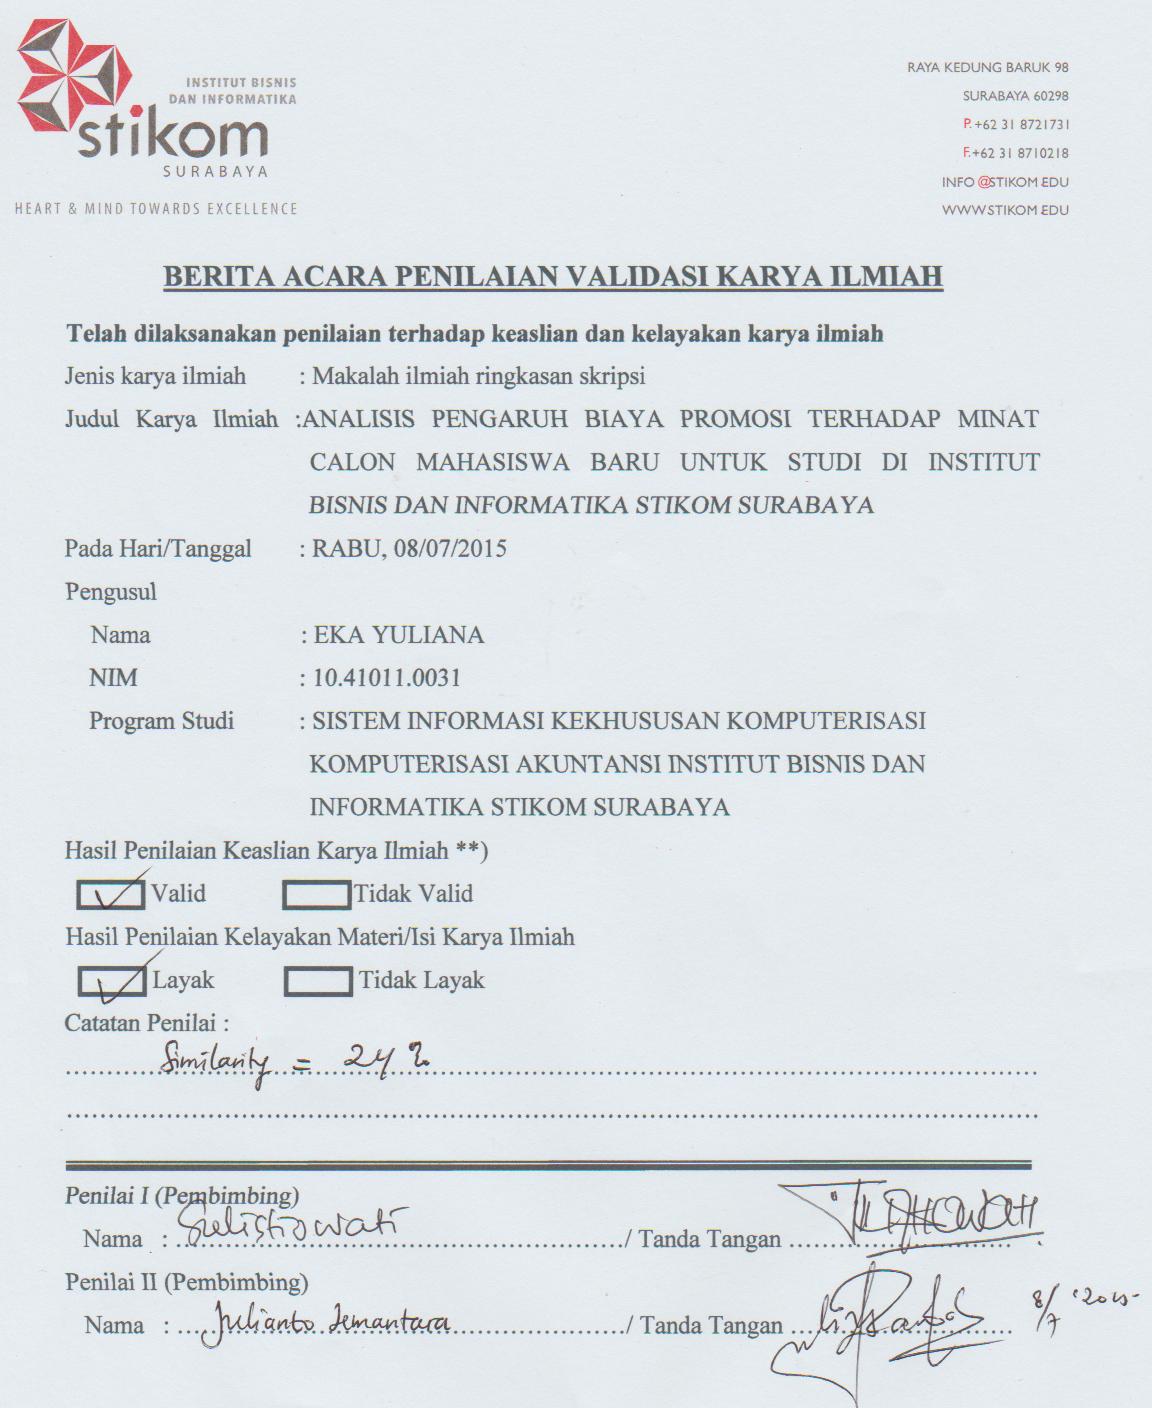 INSTITUT BISNIS
DAN INFORMATIKA
stikom
SURABAYA
HEART & MIND TOWARDS EXCELLENCE
RAYA KEDUNG BARUK 98
SURABAYA 60298
P.+62 31 8721731
F.+62 31 8710218
INFO @STIKOM.EDU
WWW.STIKOM.EDU
BERITA ACARA PENILAIAN VALIDASI KARYA ILMIAH
Telah dilaksanakan penilaian terhadap keaslian dan kelayakan karya ilmiah
Jenis karya ilmiah : Makalah ilmiah ringkasan skripsi
Judul Karya Ilmiah :ANALISIS PENGARUH BIAYA PROMOSI TERHADAP MINAT
CALON MAHASISWA BARU UNTUK STUDI DI INSTITUT
BISNIS DAN INFORMATIKA STIKOM SURABAYA
Pada Hari/Tanggal : RABU, 08/07/2015
Pengusul
Nama : EKA YULIANA
NIM : 10.41011.0031
Program Studi : SISTEM INFORMASI KEKHUSUSAN KOMPUTERISASI
KOMPUTERISASI AKUNTANSI INSTITUT BISNIS DAN
INFORMATIKA STIKOM SURABAYA
Hasil Penilaian Keaslian Karya Ilmiah **)
Valid Tidak Valid
Hasil Penilaian Kelayakan Materi/Isi Karya Ilmiah
Layak Tidak Layak
Catatan Penilai :
Similarity = 24 %
Penilai I (Pembimbing)
Nama : Sulistiowati / Tanda Tangan
Penilai II (Pembimbing)
Nama : Julianto Lemantara / Tanda Tangan 8/7 '2015